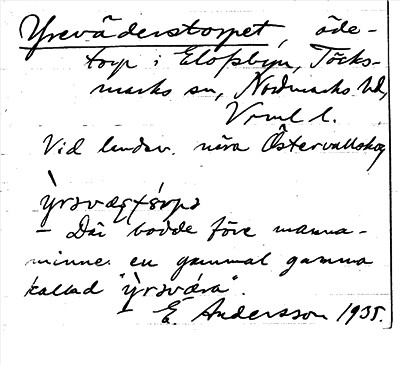 Yreväderstorpet, öde-
torp i Elofsbyn, Töcks-
marks sn, Nordmarks hd,
Vrml l.
Vid landsv. nära Östervallskog
– Där bodde före manna-
minne en gammal gumma
kallad "
– E. Andersson 1935.